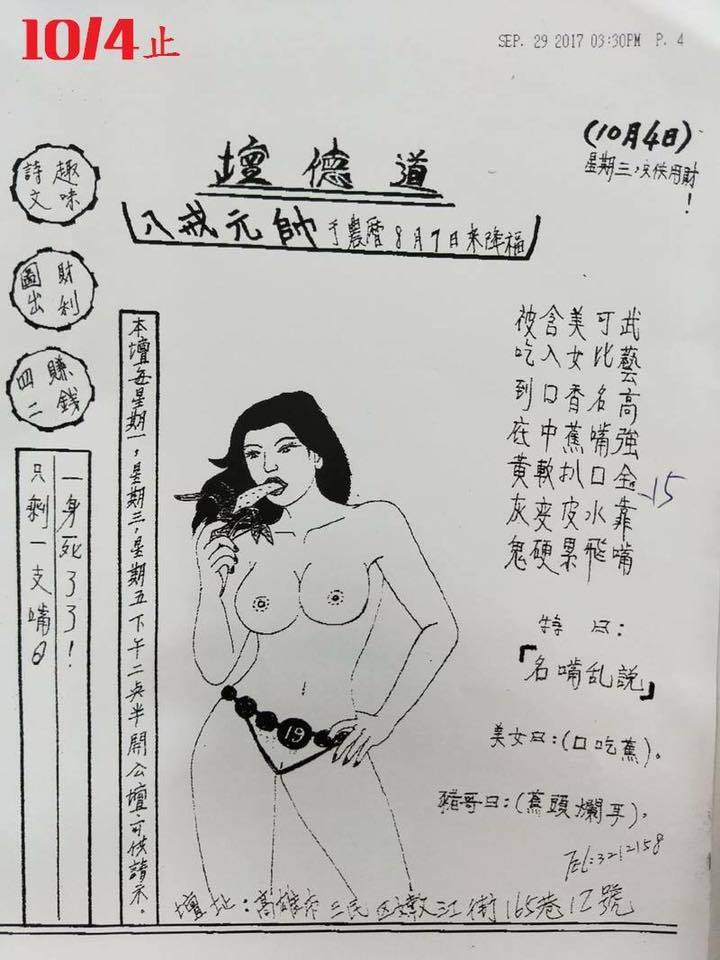 10/4止
SEP. 29 2017 03:30PM P. 4
(10月4日)
星期三,交供用財!
壇德道
八戒元帥于農曆8月7日來降福
趣味
詩文
財利
圖出
賺錢
四二
武藝高強金靠嘴
可比名嘴口水飛
美女香蕉扒皮累
含入口中軟变硬
被吃到在黃灰鬼
15
特曰:
「名嘴乱説」
美女曰:(口吃蕉)。
豬哥曰:(蕉頭爛耳)。
TEL:3212158
19
本壇每星期一,星期三,星期五下午二点半開公壇,可供請示。
一身死了了!
只剩一支嘴日
壇址:高雄市三民区嫩江街165巷12號